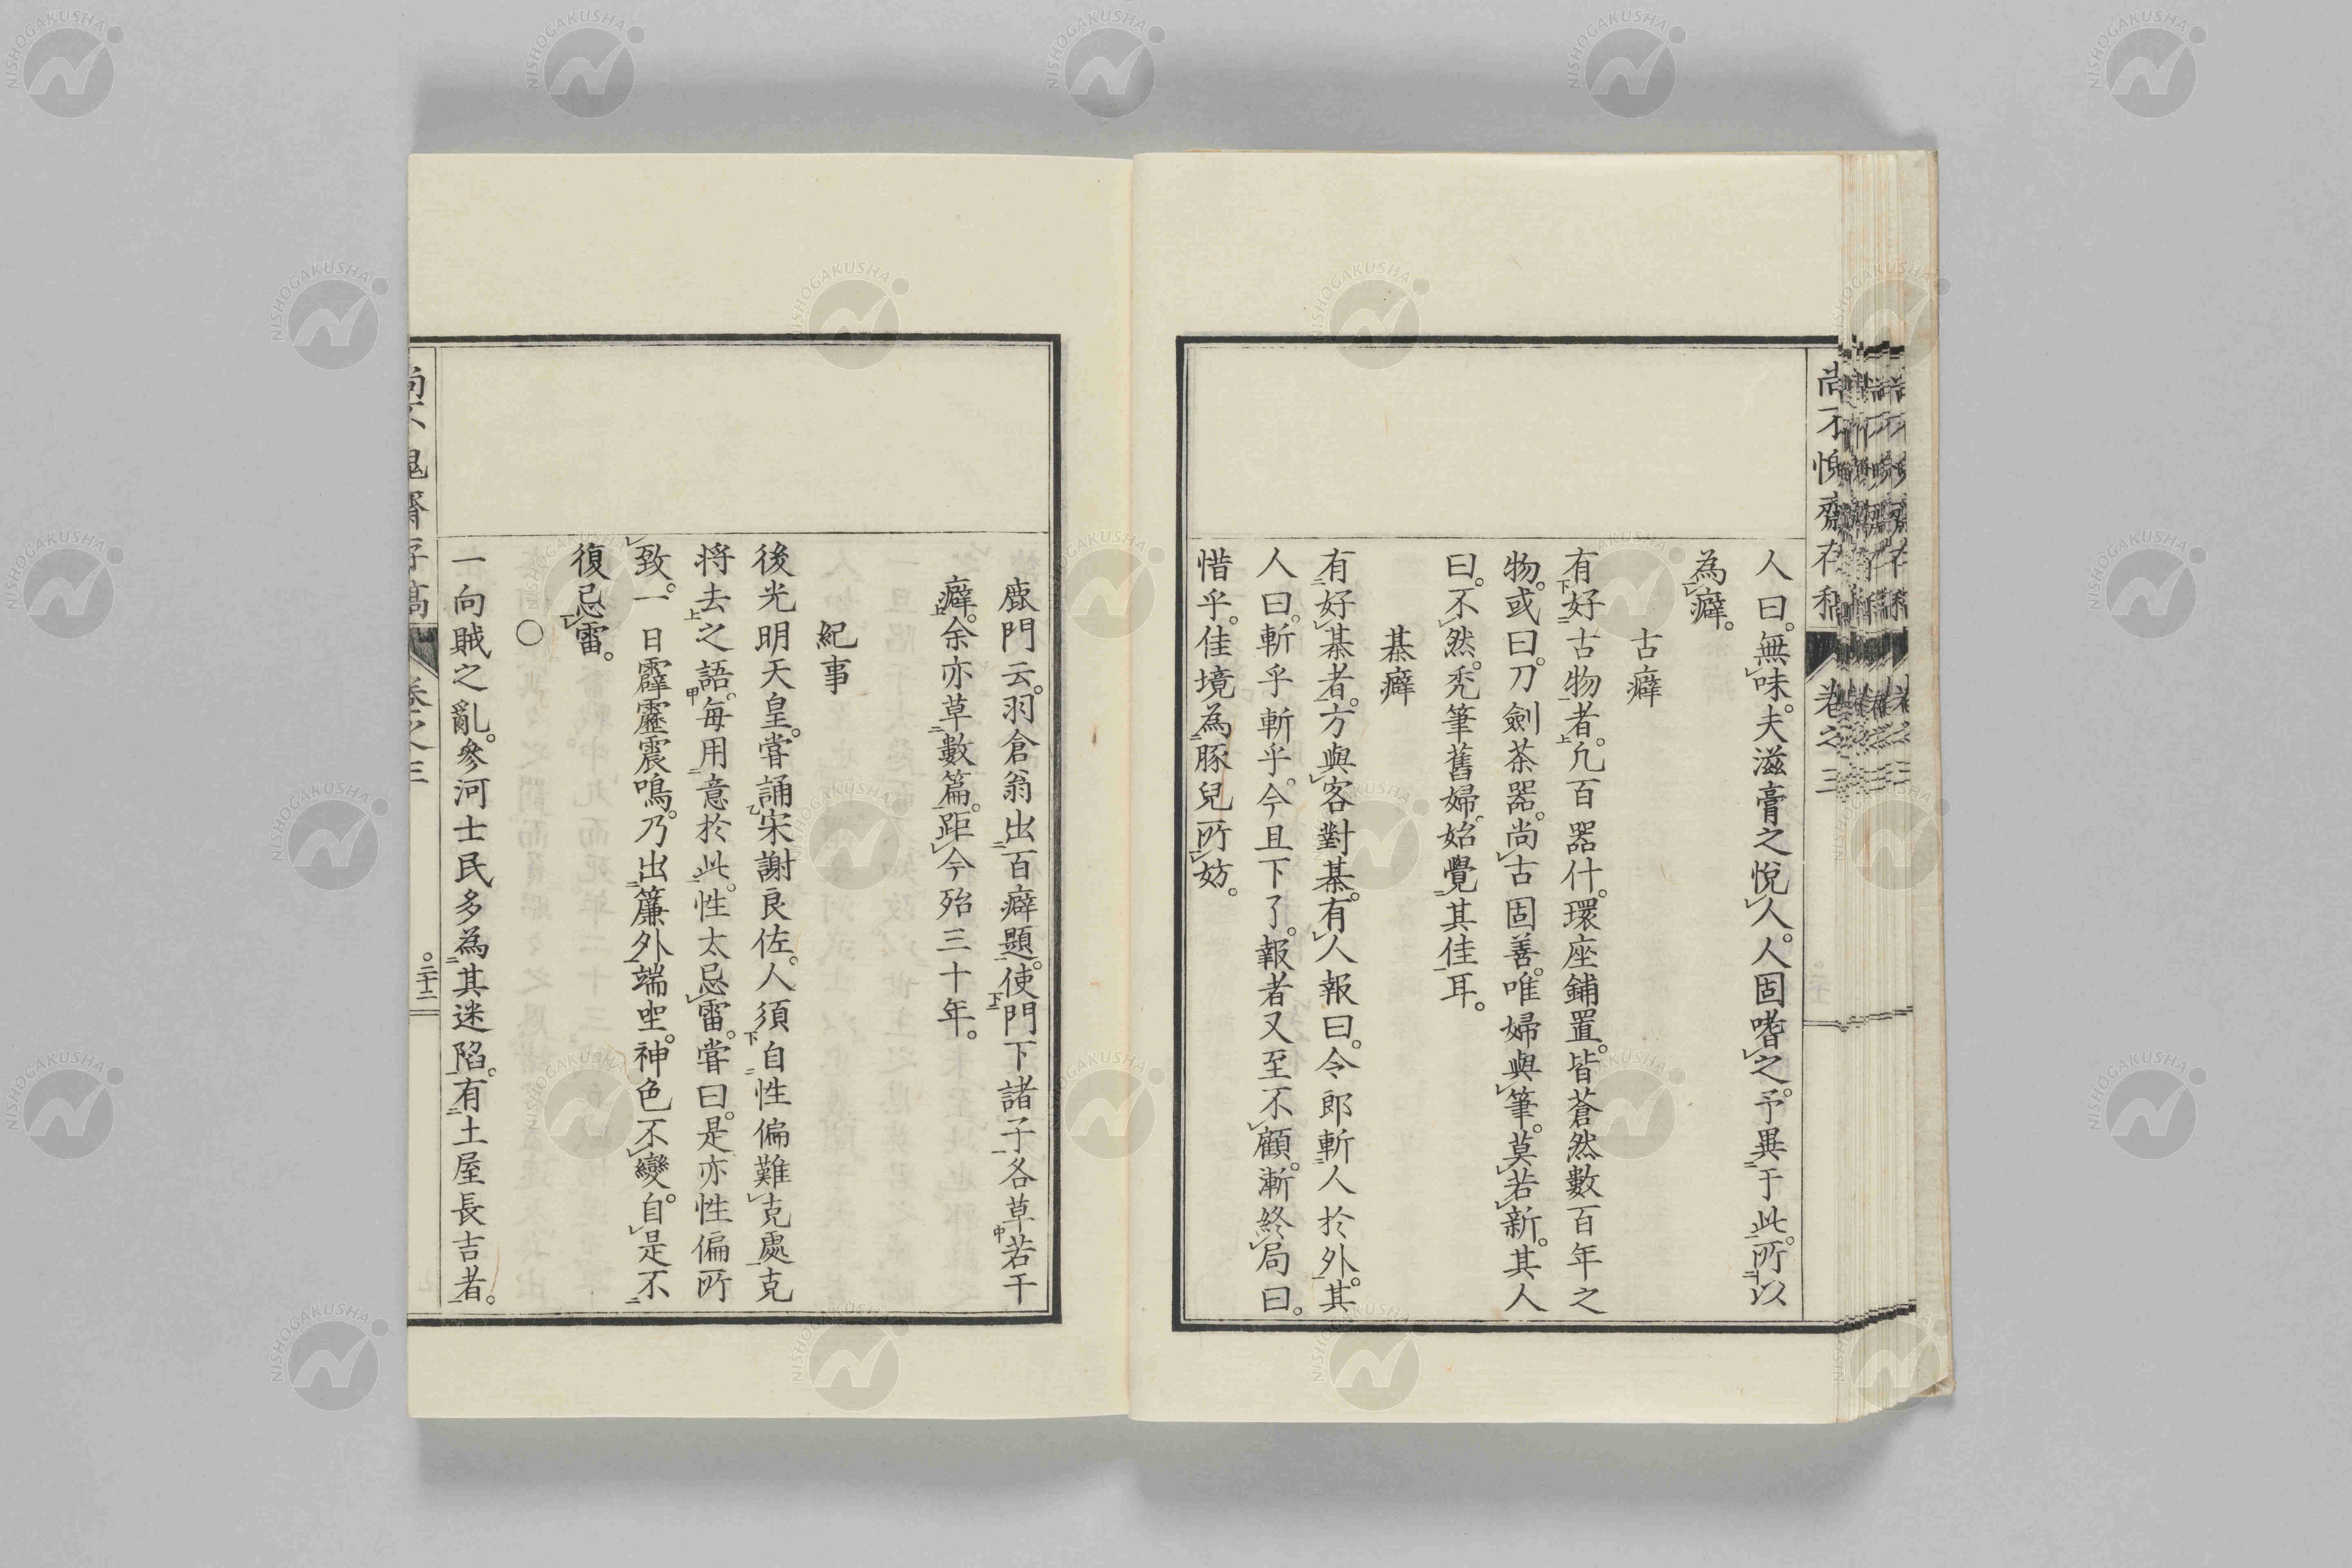 尚不愧齋存稿 卷之三
人曰。無味。夫滋膏之悅人。人固嗜之。予異于此。所以
為癖。
古癖
有好古物者。凢百器什。環座鋪置。皆蒼然數百年之
物。或曰。刀劍茶器。尚古固善。唯婦與筆。莫若新。其人
曰。不然。禿筆舊婦。始覺其佳耳。
棊癖
有好棊者。方與客對棊。有人報曰。令郎斬人於外。其
人曰。斬乎斬乎。今且下了。報者又至不顧。漸終局曰。
惜乎。佳境為豚兒所妨。
鹿門云。羽倉翁出百癖題。使門下諸子各草若干
癖。余亦草數篇。距今殆三十年。
紀事
後光明天皇。嘗誦宋謝良佐。人須自性偏難克處克
将去之語。每用意於此。性太忌雷。嘗曰。是亦性偏所
致。一日霹靂震鳴。乃出簾外端坐。神色不變。自是不
復忌雷。
〇
一向賊之亂。參河士民多為其迷陷。有土屋長吉者。
尚不愧齋存稿 卷之三 二十二
NISHOGAKUSHA